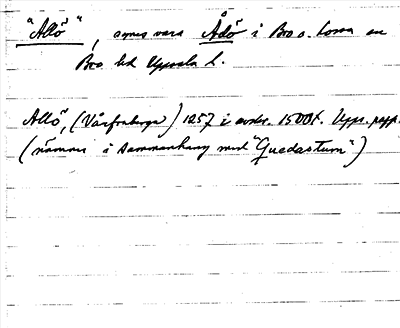 "Allö", synes vara Ådö i Bro s. Lossa sn
Bro hd Uppsala l.
Allö, (Vårfruberga) 1257 i avskr. 1500t. Upps. papp.
(nämnes i sammanhang med "Guedastum")